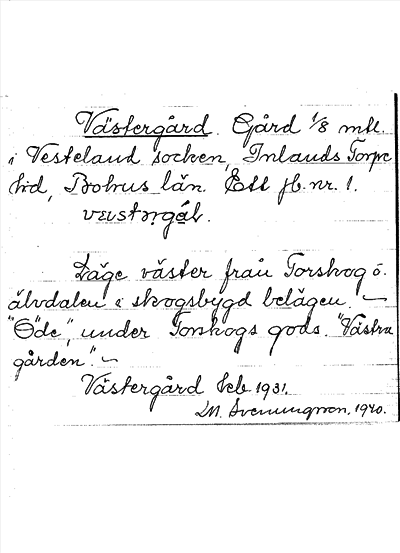 Västergård. Gård 1/8 mtl.
i Vesteland socken, Inlands Torpe
hd, Bohus län. Ett jb. nr. 1.
Läge väster från Torskog ö.
älvdalen i skogsbygd belägen. ~
"Öde", under Torskogs gods. "Västra
gården". ~
Västergård Keb. 1931.
LM. Svenungsson, 1940.